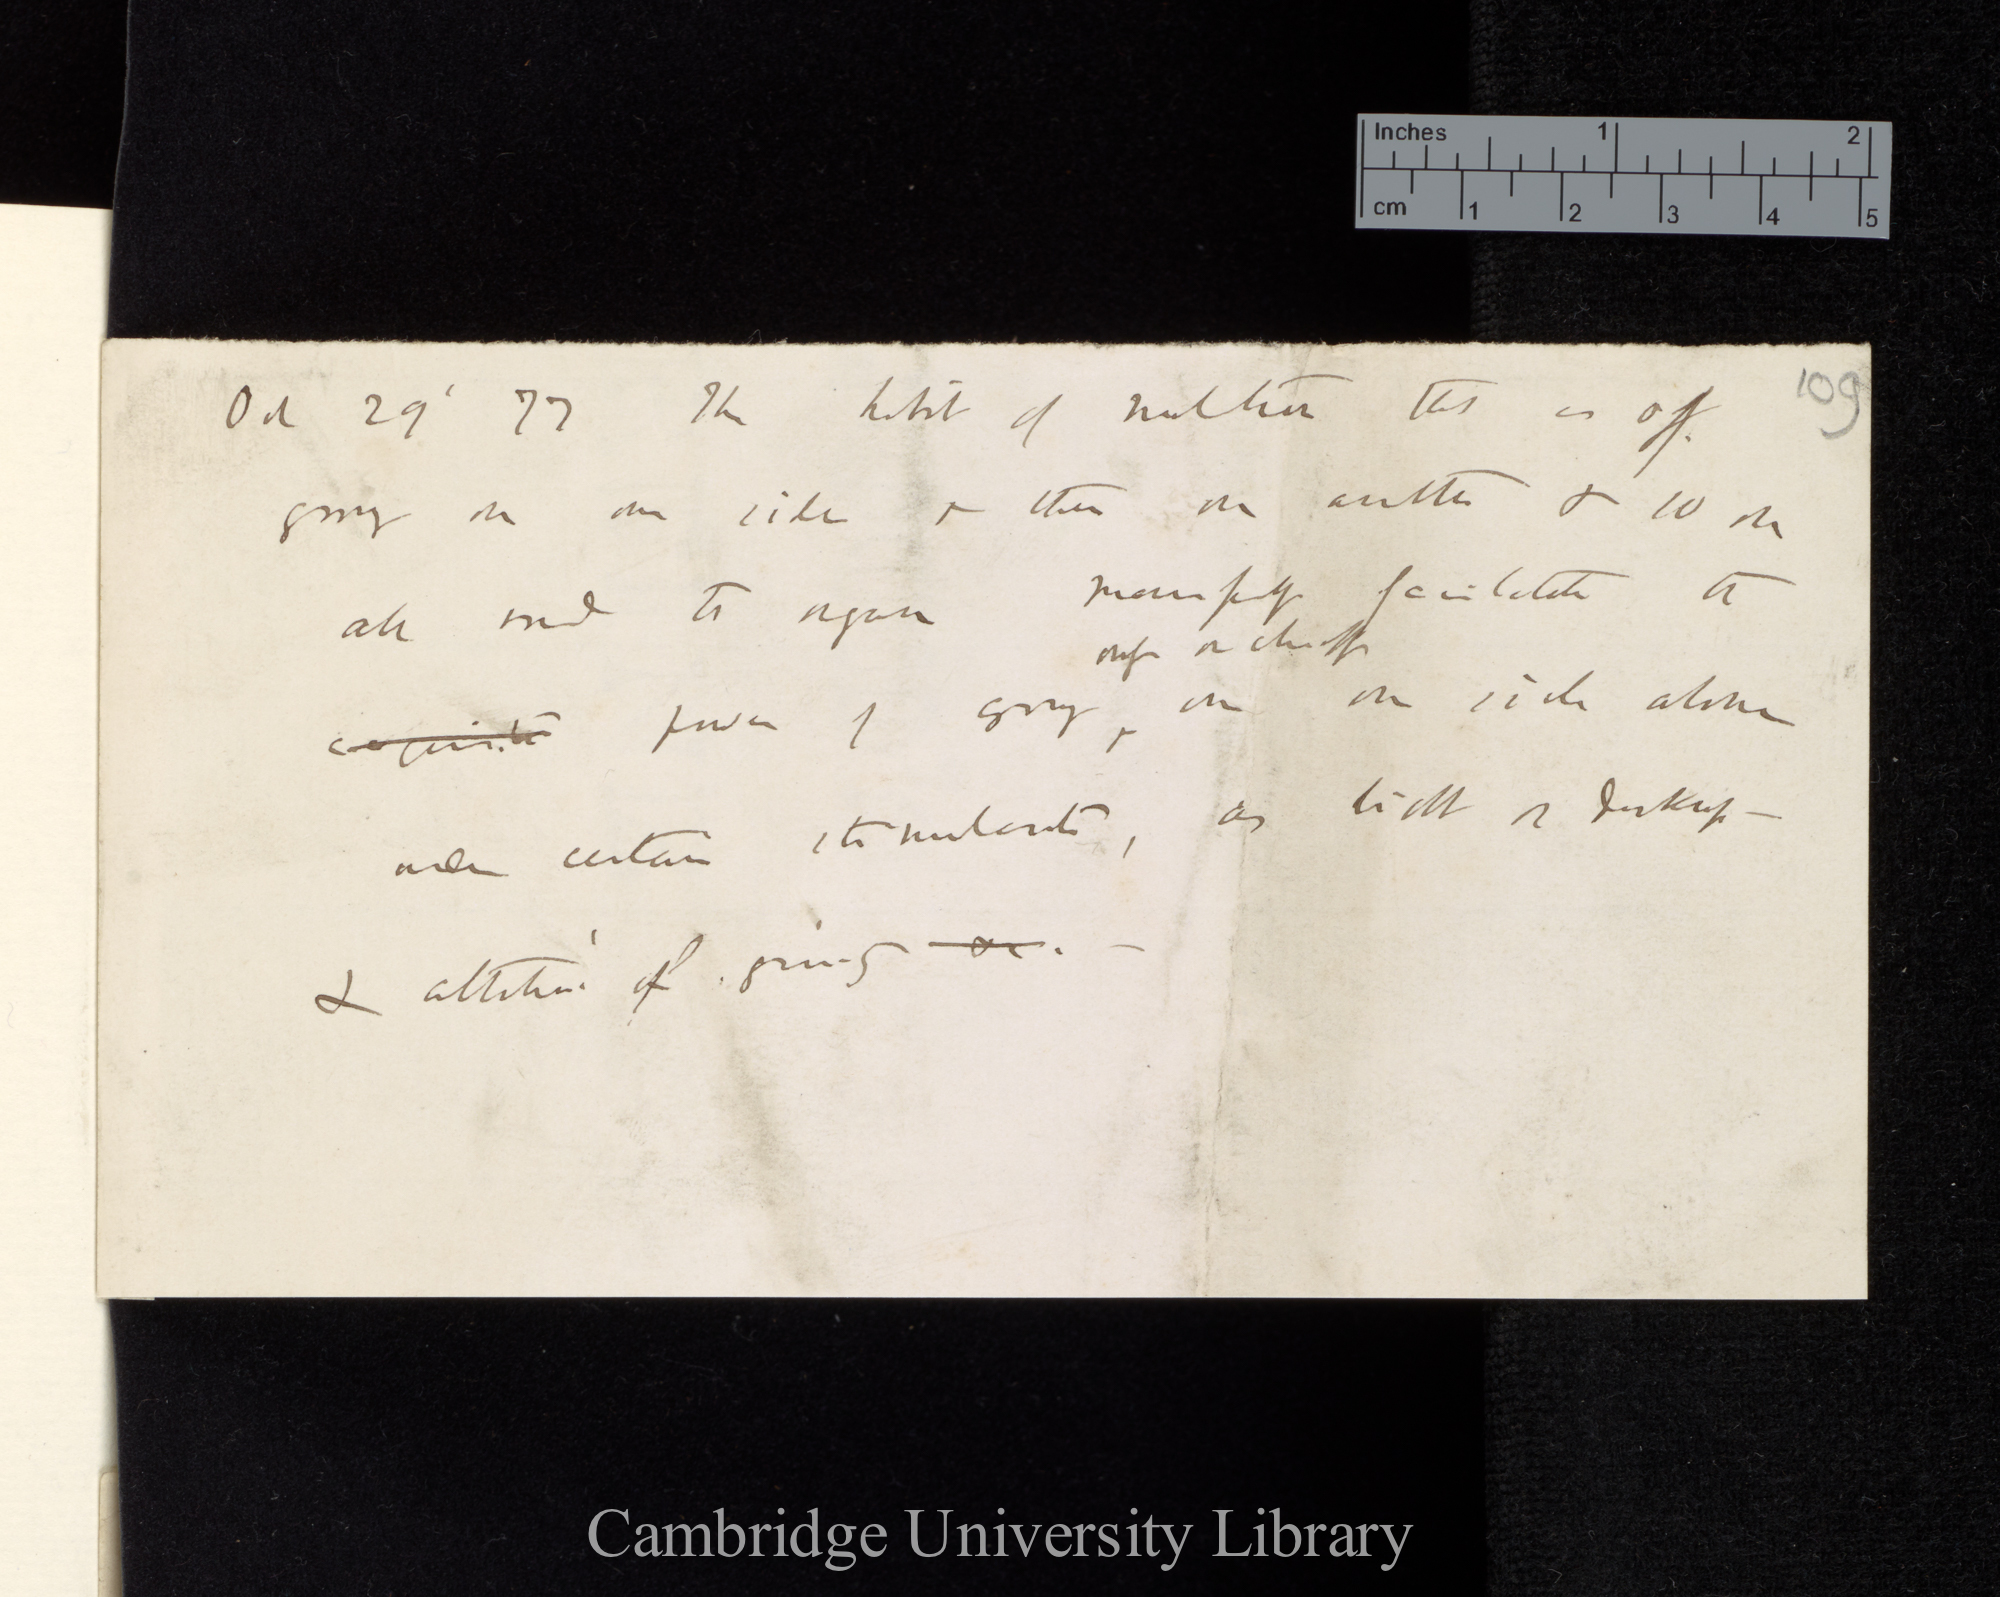 Inches 1 2
cm 1 2 3 4 5
109
Oct 29' 77 The habit of nutation that is of
growg on one side & then on another & so on
all round the organ manifestly facilitates the
only or chiefly
acquisite power of growg on one side alone
under certain stimulants, as light or darkness —
& attraction of gravity or. —
Cambridge University Library